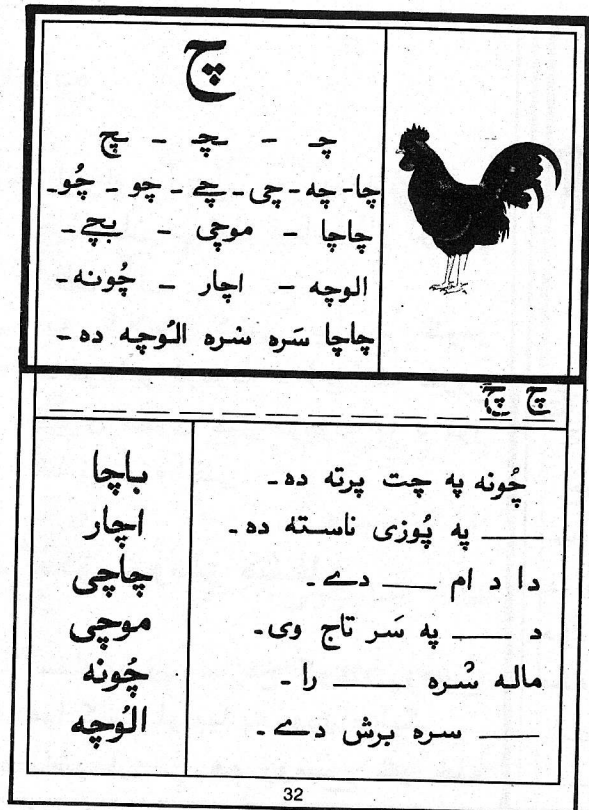 چ
چـ - ـچـ - ـچ
چا- چه- چی- چے- چو- چُو-
چاچا - موچی - بچے-
الوچه - اچار - چُونه-
چاچا سَره سُره الُوچه ده-
چ چ
چُونه په چت پرته ده-
____ په پُوزی ناسته ده-
دا د ام ____ دے-
د ____ په سَر تاج وی-
ماله سُره ____ را-
____ سره برش دے-
باچا
اچار
چاچی
موچی
چُونه
الُوچه
32